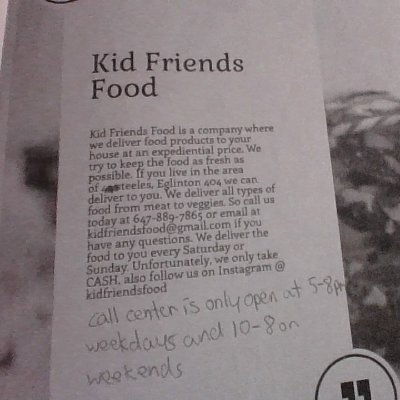 Kid Friends
Food
Kid Friends Food is a company where
we deliver food products to your
house at an expediential price. We
try to keep the food as fresh as
possible. If you live in the area
of steeles, Eglinton 404 we can
deliver to you. We deliver all types of
food from meat to veggies. So call us
today at 647-889-7865 or email at
kidfriendsfood@gmail.com if you
have any questions. We deliver the
food to you every Saturday or
Sunday. Unfortunately, we only take
CASH, also follow us on Instagram @
kidfriendsfood
call center is only open at 5-8pm
weekdays and 10-8 on
weekends